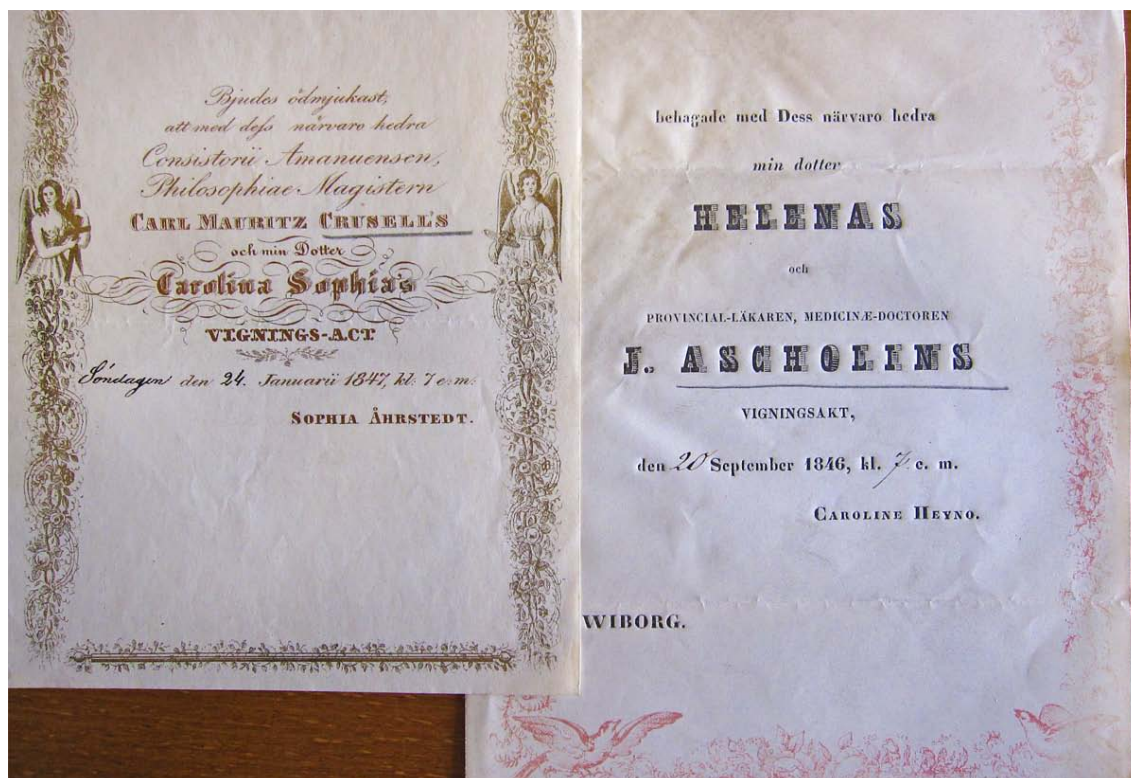 Bjudes ödmjukast,
att med dess närvaro hedra
Consistorii Amanuensen,
Philosophiae Magistern
CARL MAURITZ CRUSELL'S
och min Dotter
Carolina Sophia's
VIGNINGS-ACT
Söndagen den 24. Januarii 1847, kl: 7 e.m.
SOPHIA ÅHRSTEDT.
behagade med Dess närvaro hedra
min dotter
HELENAS
och
PROVINCIAL-LÄKAREN, MEDICINÆ-DOCTOREN
J. ASCHOLINS
VIGNINGSAKT,
den 20 September 1846, kl. 7 e. m.
CAROLINE HEYNO.
WIBORG.